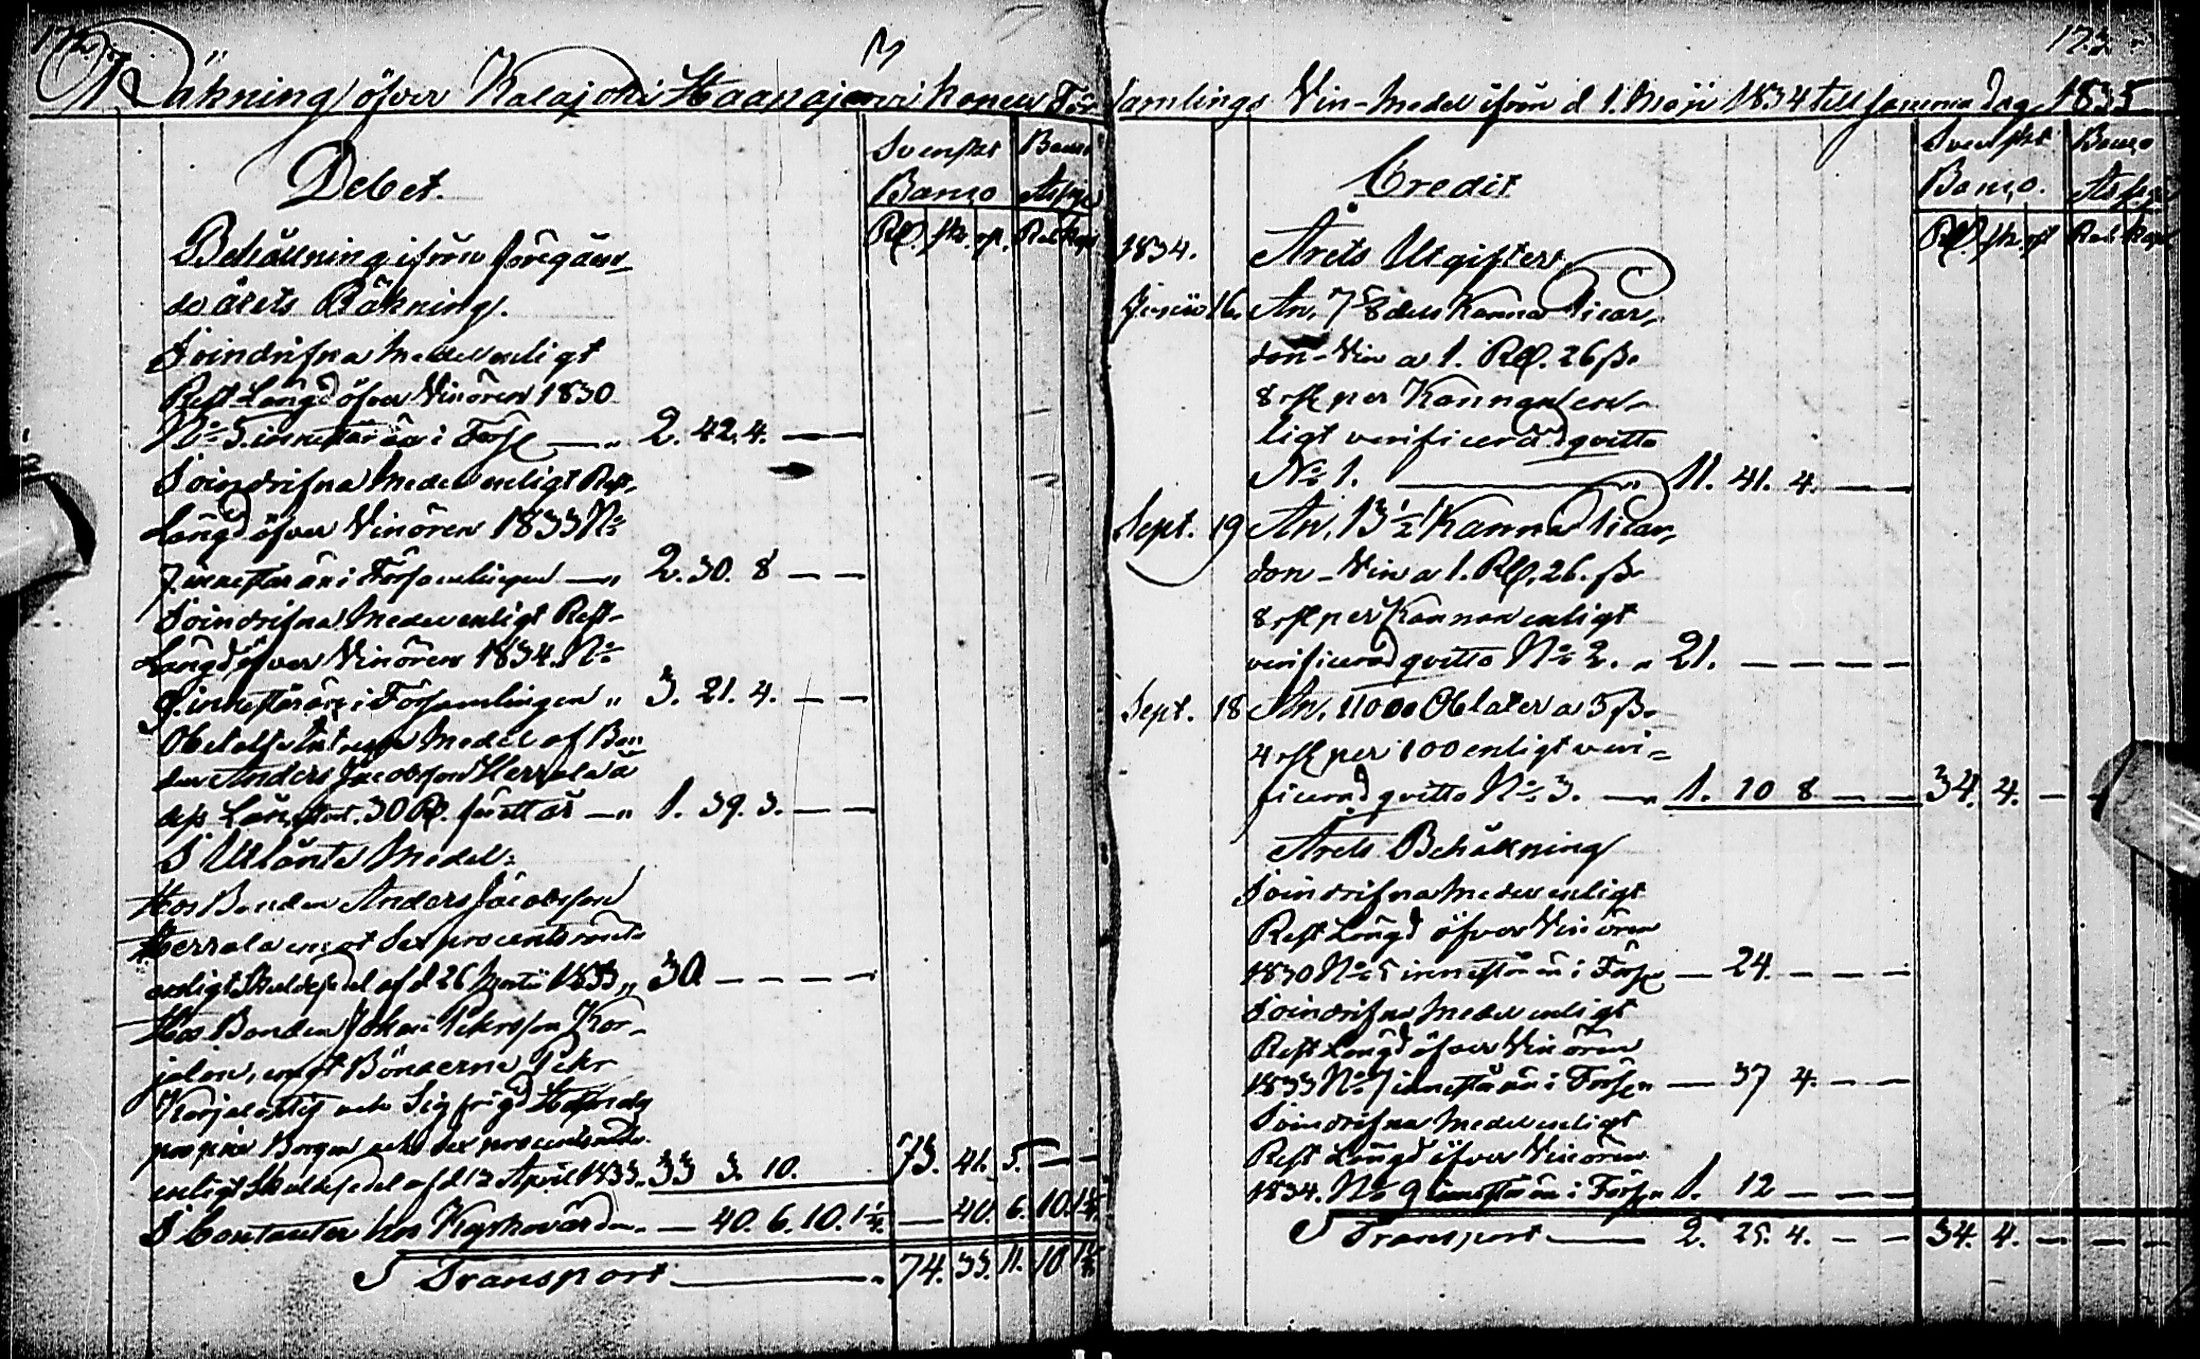 172.
Räkning öfver Kalajoki Haapajärvi Kapell För
Debet.
Svenskt Banco
Banco
Banco Assigt
RD. sk. rst. Rub. Kop.
Behållning ifrån föregåen-
de årets Räkning.
Oindrifna Medel enligt
Rest Längd öfver Vinören 1830
No 5. innestående i Förs. — „ 2. 42. 4. — —
Oindrifna Medel enligt Rest-
Längd öfver Vinören 1833 No
7. innestår än i Församlingen — „ 2. 30. 8 — —
Oindrifna Medel enligt Rest-
Längd öfver Vinören 1834. No
9. innestår än i Församlingen „ 3. 21. 4. — —
Obetalte Intresse Medel af Bon
den Anders Jacobsson Herrala å
dess Lån, stort. 30 RD. för ett år — „ 1. 39. 3. — —
I Utlånte Medel:
Hos Bonden Anders Jacobsson
Herrala emot Sex procents ränta
enligt Skuldsedel af d 26 Martii 1833 „ 30 — — — —
Hos Bonden Johan Petersson Kar-
jalan, emot Bönderne Petr
Karjalas och Sigfrid
Borgen och sex procents ränta
enligt Skuldsedel af d 12 April 1833 „ 33 3. 10. 73. 41. 5. — —
I Contanter hos Kyrkovärden. — 40. 6. 10. 1 1/4. — 40. 6. 10. 1 1/4.
I Transport — „ 74. 33. 11. 10. 1 1/4
173.
samlings Vin-Medel ifrån d 1. Maji 1834 till samma dag 1835
Credit
Svenskt Banco
Banco. Assigt
RD. sk. rst Rub. Kop.
1834. Årets Utgifter.
Junii 16. An. 7 5/8 dels Kanna Picar-
don-Vin a 1. RD. 26 sk.
8 rst per Kannan en-
ligt verificerad qvitto
No 1. — „ 11. 41. 4. — —
Sept. 19 An. 13 1/2 Kanna Picar-
don-Vin a 1. RD. 26. sk
8 rst per Kannan enligt
verificerad qvitto No 2. „ 21. — — — —
Sept. 18 An. 1100 Oblater a 5 sk.
4 rst per 100 enligt veri-
ficerad qvitto No 3. — „ 1. 10 8 — — 34. 4. — —
Årets Behållning
Oindrifna Medel enligt
Rest Längd öfver Vinören
1830 No 5 innestår än i Förs. — 24. — — —
Oindrifna Medel enligt
Rest Längd öfver Vinören
1833 No 7 innestår än i Förs. — 37 4. — —
Oindrifna Medel enligt
Rest Längd öfver Vinören
1834. No 9 innestår än i Förs. 1. 12 — — —
I Transport — 2. 25. 4. — — 34. 4. — — —